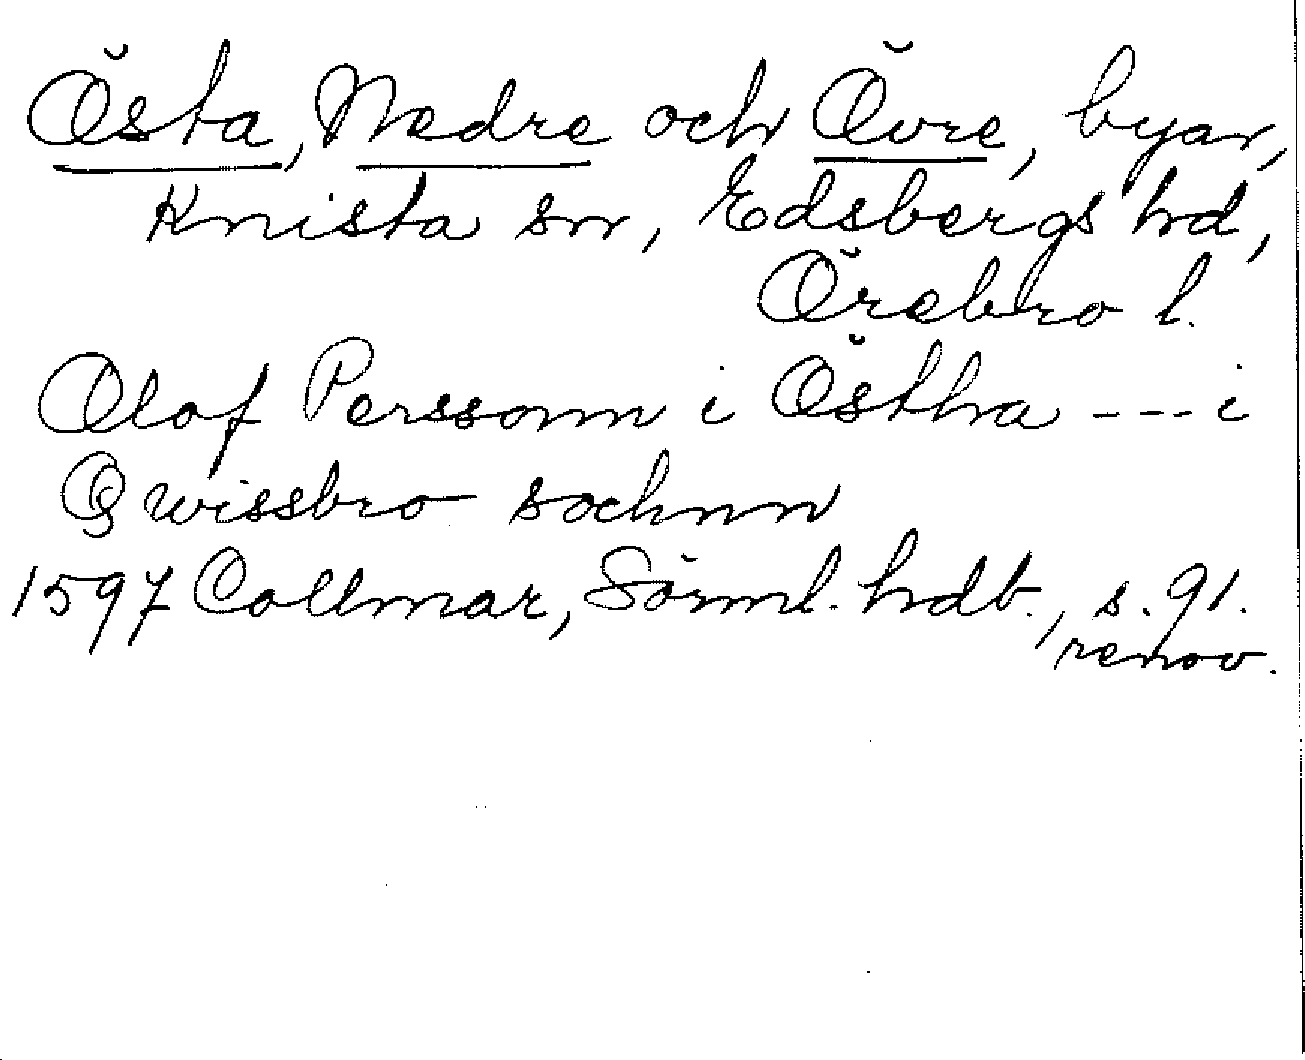 Östa, Nedre och Övre, byar,
Knista sn, Edsbergs hd,
Örebro l.
Olof Perssonn i Östha --- i
Qwissbro sochnn
1597 Collmar, Sörml. hdb., s. 91.
renov.